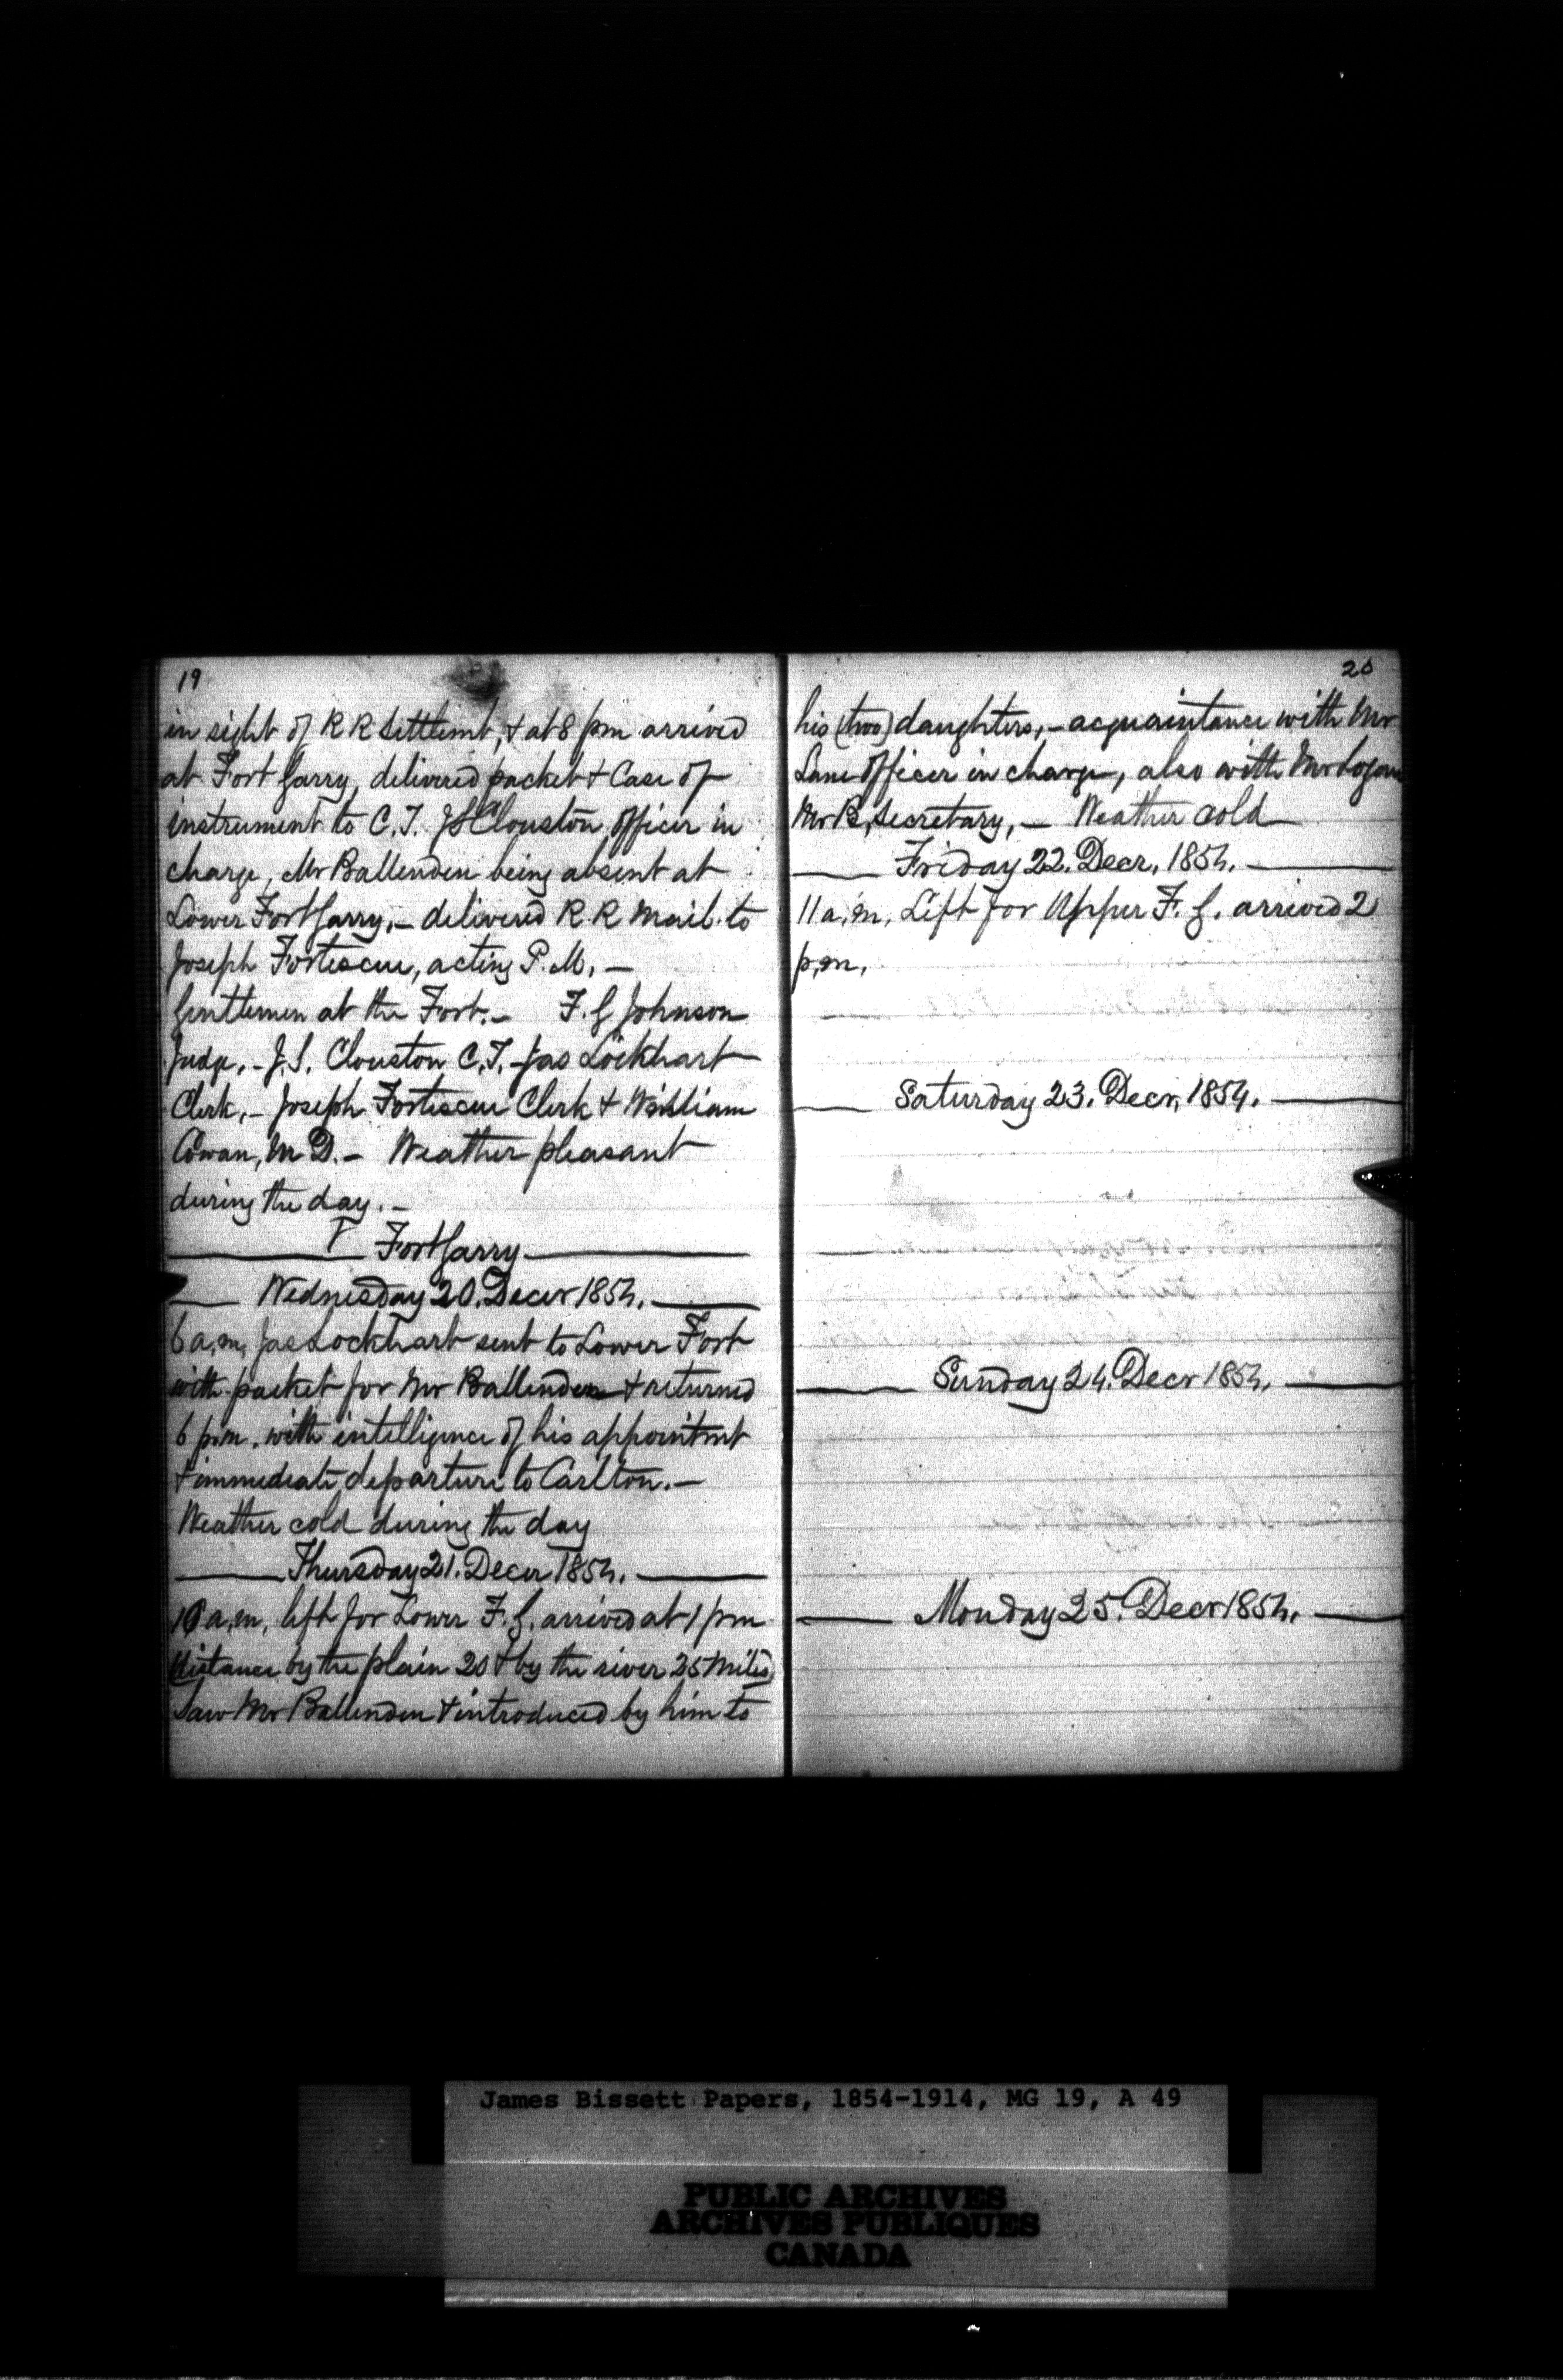 19
in sight of R R Settlemt, & at 8 pm arrived
at Fort Garry, delivered packet & Case of
instrument to C.T. J S Clouston, Officer in
charge, Mr Ballenden being absent at
Lower Fort Garry, – delivered R R Mail to
Joseph Fortescue, acting P.M. –
Gentlemen at the Fort. – F. G Johnson
Judge, – J. S. Clouston C.T. – Jas Lockhart
Clerk, – Joseph Fortescue Clerk & William
Cowan, M D. – Weather pleasant
during the day. –
Fort Garry
Wednesday 20. Decer 1854.
6 a.m, Jas Lockhart sent to Lower Fort
with packet for Mr Ballenden & returned
6 p.m. with intelligence of his appointmt
& immediate departure to Carlton. –
Weather cold during the day
Thursday 21. Decer 1854.
10 a.m, left for Lower F. G. arrived at 1 pm
distance by the plain 20 & by the river 25 miles
Saw Mr Ballenden & introduced by him to
20
his (two) daughters, – acquaintance with Mr
Lane Officer in charge, also with Mr Logan
Mr B, Secretary, – Weather cold
Friday 22. Decr, 1854.
11 a.m, Left for Upper F. G. arrived 2
p.m,
Saturday 23. Decr, 1854.
Sunday 24. Decr 1854.
Monday 25. Decr 1854.
James Bissett Papers, 1854-1914, MG 19, A 49
PUBLIC ARCHIVES
ARCHIVES PUBLIQUES
CANADA